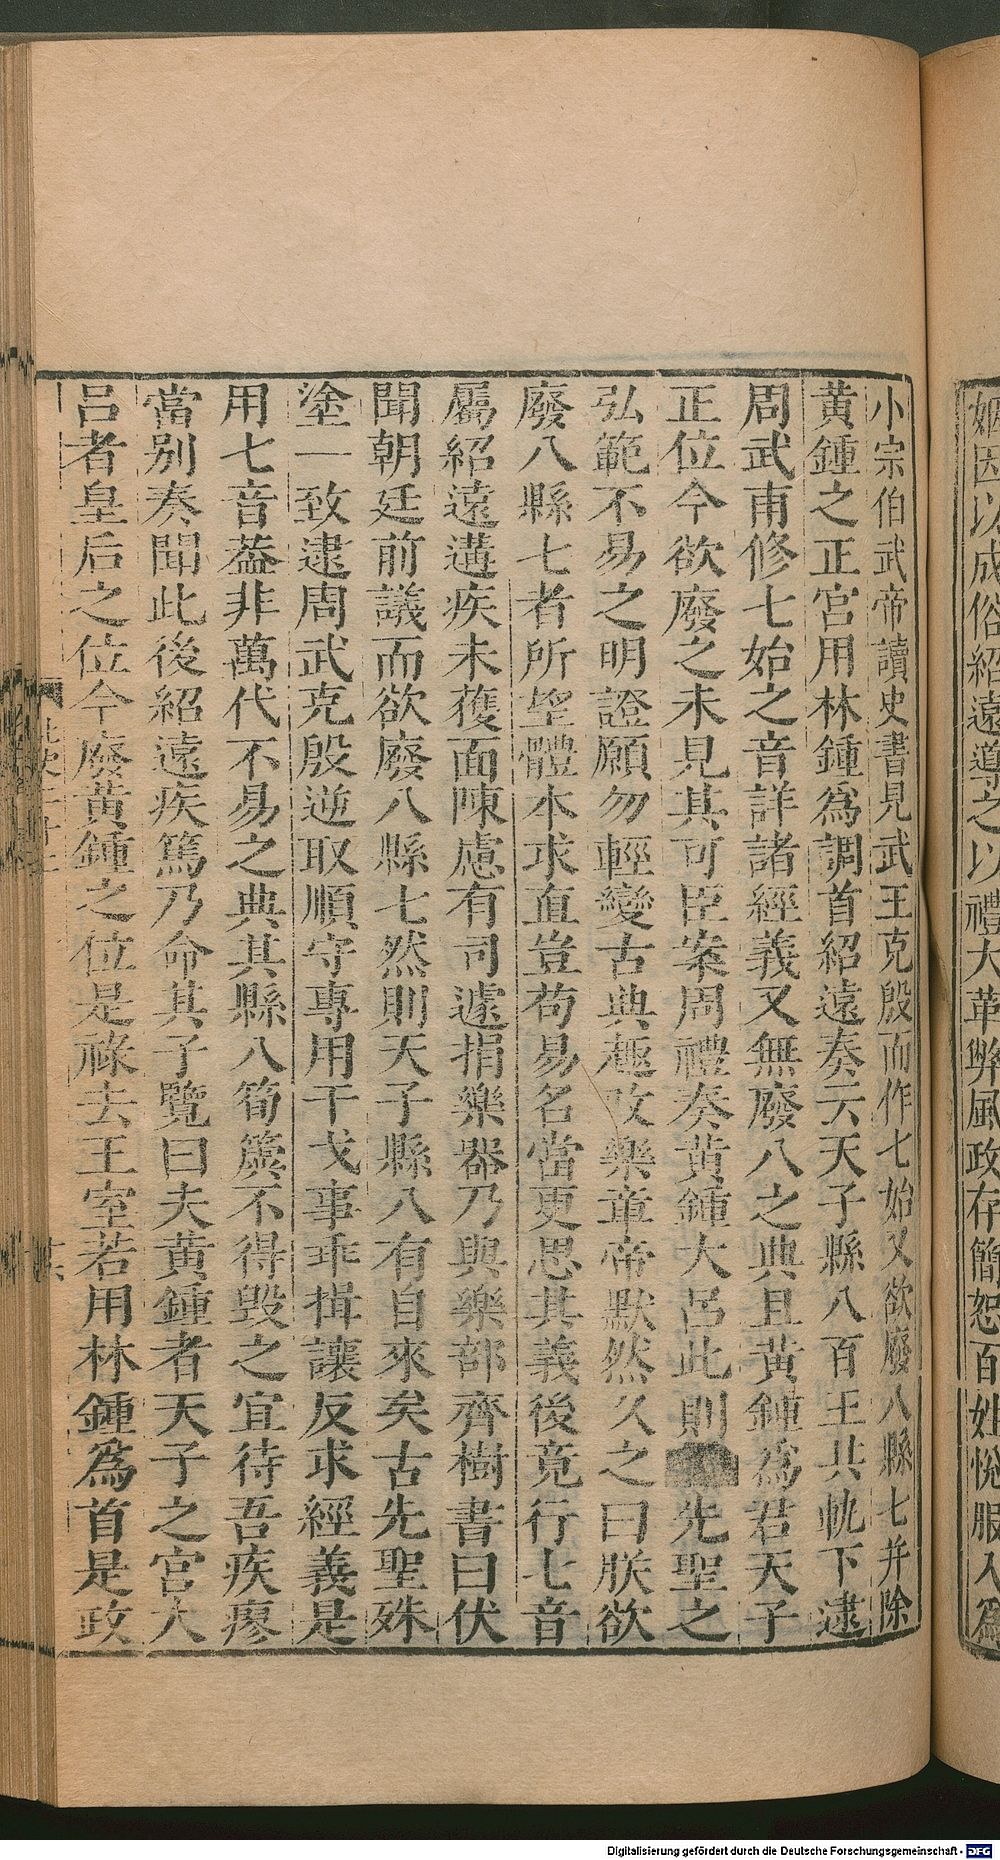 姻因以成俗紹遠導之以禮大革弊風政存簡恕百姓悅服入為
小宗伯武帝讀史書見武王克殷而作七始又欲廢八縣七并除
黃鍾之正宮用林鍾爲調首紹遠奏云天子縣八百王共軌下逮
周武甫修七始之音詳諸經義又無廢八之典且黃鍾爲君天子
正位今欲廢之未見其可臣案周禮奏黃鍾大呂此則先聖之
弘範不易之明證願勿輕變古典趣改樂章帝默然久之曰朕欲
廢八縣七者所望體本求直豈苟易名當更思其義後竟行七音
屬紹遠遘疾未獲面陳慮有司遽捐樂器乃與樂部齊樹書曰伏
聞朝廷前議而欲廢八縣七然則天子縣八有自來矣古先聖殊
塗一致逮周武克殷逆取順守專用干戈事乖揖讓反求經義是
用七音葢非萬代不易之典其縣八筍簴不得毀之宜待吾疾瘳
當別奏聞此後紹遠疾篤乃命其子覽曰夫黃鍾者天子之宮大
呂者皇后之位今廢黃鍾之位是祿去王室若用林鍾爲首是政
Digitalisierung gefördert durch die Deutsche Forschungsgemeinschaft - DFG